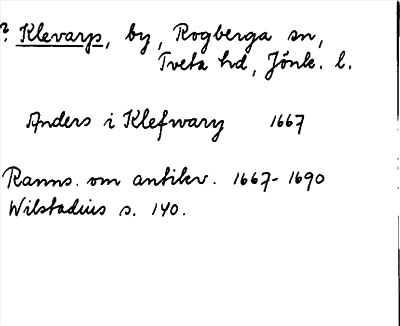 ? Klevarp, by, Rogberga sn,
Tveta hd, Jönk. l.
Anders i Klefwary 1667
Ranns. om antikv. 1667-1690
Wilstadius s. 140.